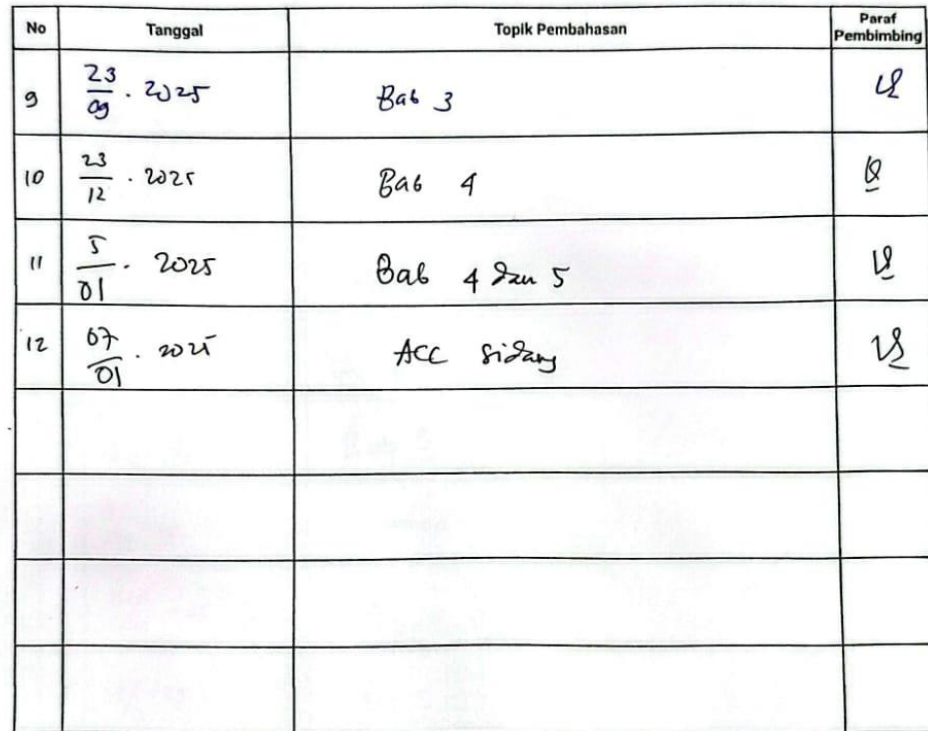 No Tanggal Topik Pembahasan Paraf Pembimbing
9 23/09 . 2025 Bab 3
10 23/12 . 2025 Bab 4
11 5/01 . 2025 Bab 4 dan 5
12 07/01 . 2025 ACC sidang